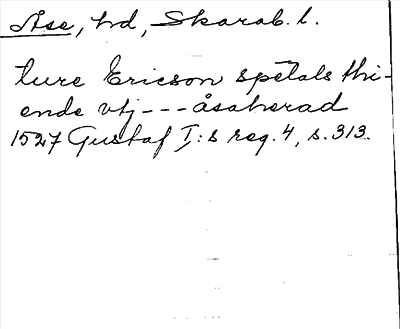 Åse, hd, Skarab. l.
ture Ericson spetals thi-
ende vtj --- åsaherad
1527 Gustaf I:s reg. 4, s. 313.